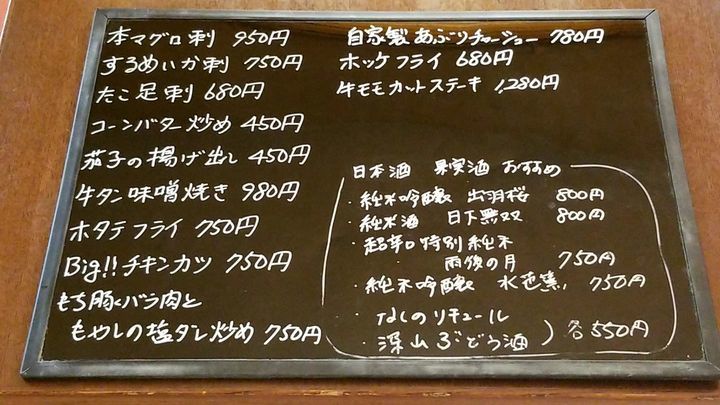 本マグロ刺 950円
するめいか刺 750円
たこ足刺 680円
コーンバター炒め 450円
茄子の揚げ出し 450円
牛タン味噌焼き 980円
ホタテフライ 750円
Big!! チキンカツ 750円
もち豚バラ肉と
もやしの塩タレ炒め 750円
自家製あぶりチャーシュー 780円
ホッケフライ 680円
牛モモカットステーキ 1,280円
日本酒 果実酒 おすすめ
・純米吟醸 出羽桜 800円
・純米酒 日下無双 800円
・超辛口特別純米
雨後の月 750円
・純米吟醸 水芭蕉 750円
・なしのリキュール
・深山ぶどう酒 ) 各550円